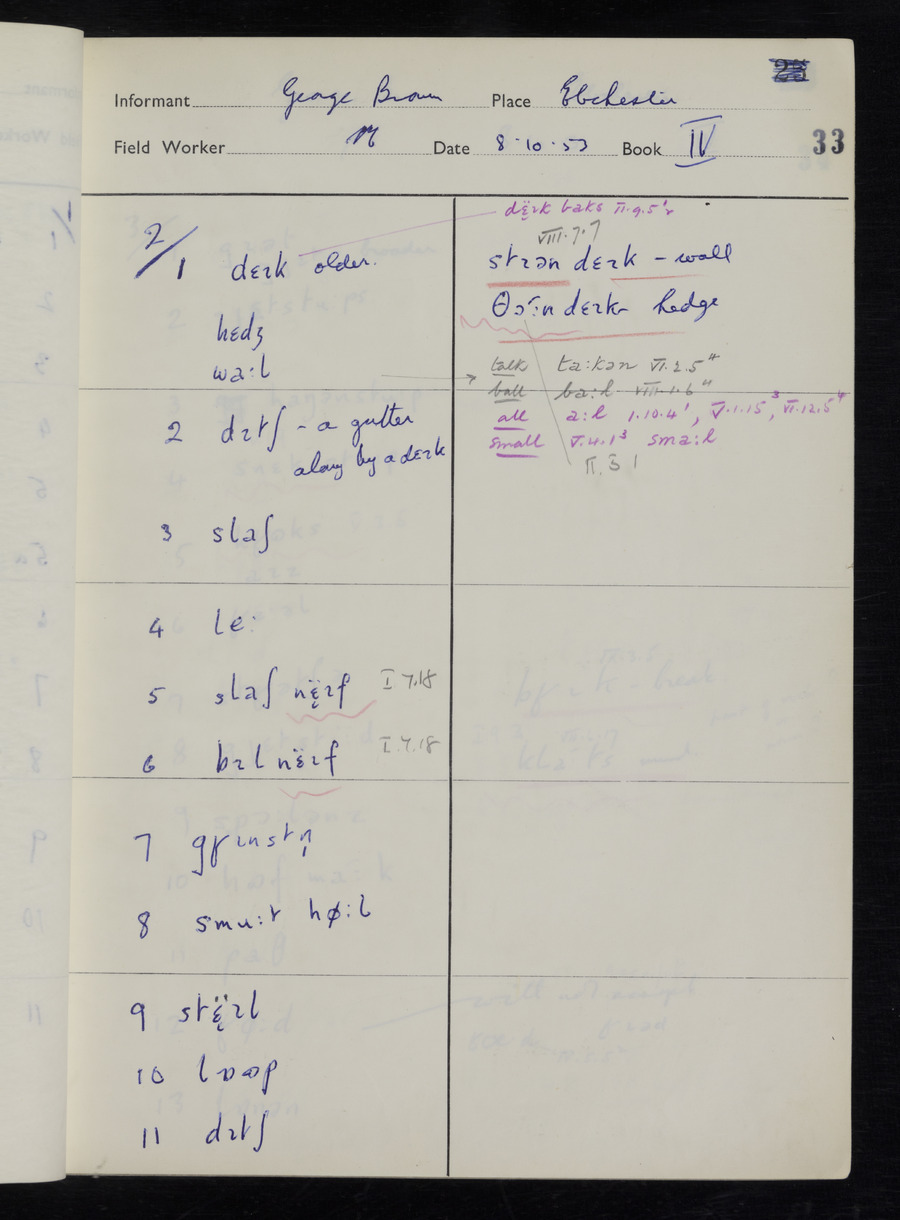 Informant George Brown Place Ebchester
Field Worker Date 8.10.53 Book IV 33
dɛ̈ɪk baks II.9.5'r
VIII.7.7
2/1 dɛɪk older. stɪən dɛɪk - wall
hɛdʒ hedge
wa:l
talk ta:kən VI.2.5"
ball ba:l VIII.1.6"
all a:l 1.10.4', V.1.15³, VI.12.5⁴
small V.4.1³ sma:l
2 dɪtʃ - a gutter
along by a dɛɪk
3 slaʃ
4 le:
5 slaʃ nɛ̈ɪf I 7.18
6 bɪl nɛ̈ɪf I.7.18
7 gɾɪnstn̩
8 smu:t hø:l
9 stɛ̈ɪl
10 lɒɒp
11 dɪtʃ